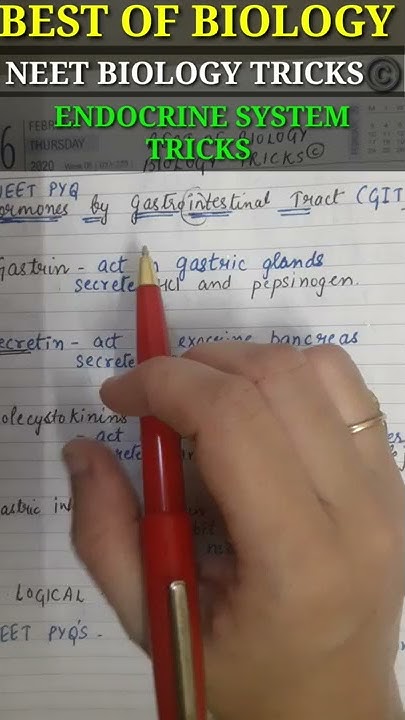 BEST OF BIOLOGY
NEET BIOLOGY TRICKS©
ENDOCRINE SYSTEM
TRICKS
6
THURSDAY
2020
BIOLOGY
BIOLOGY TRICKS©
NEET PYQ
ormones by Gastrointestinal Tract (GIT
Gastrin - act gastric glands
secrete HCl and pepsinogen.
ecretin - act exocrine pancreas
secrete
olecystokinins
- act
astric in
LOGICAL
EET PYQ'S -